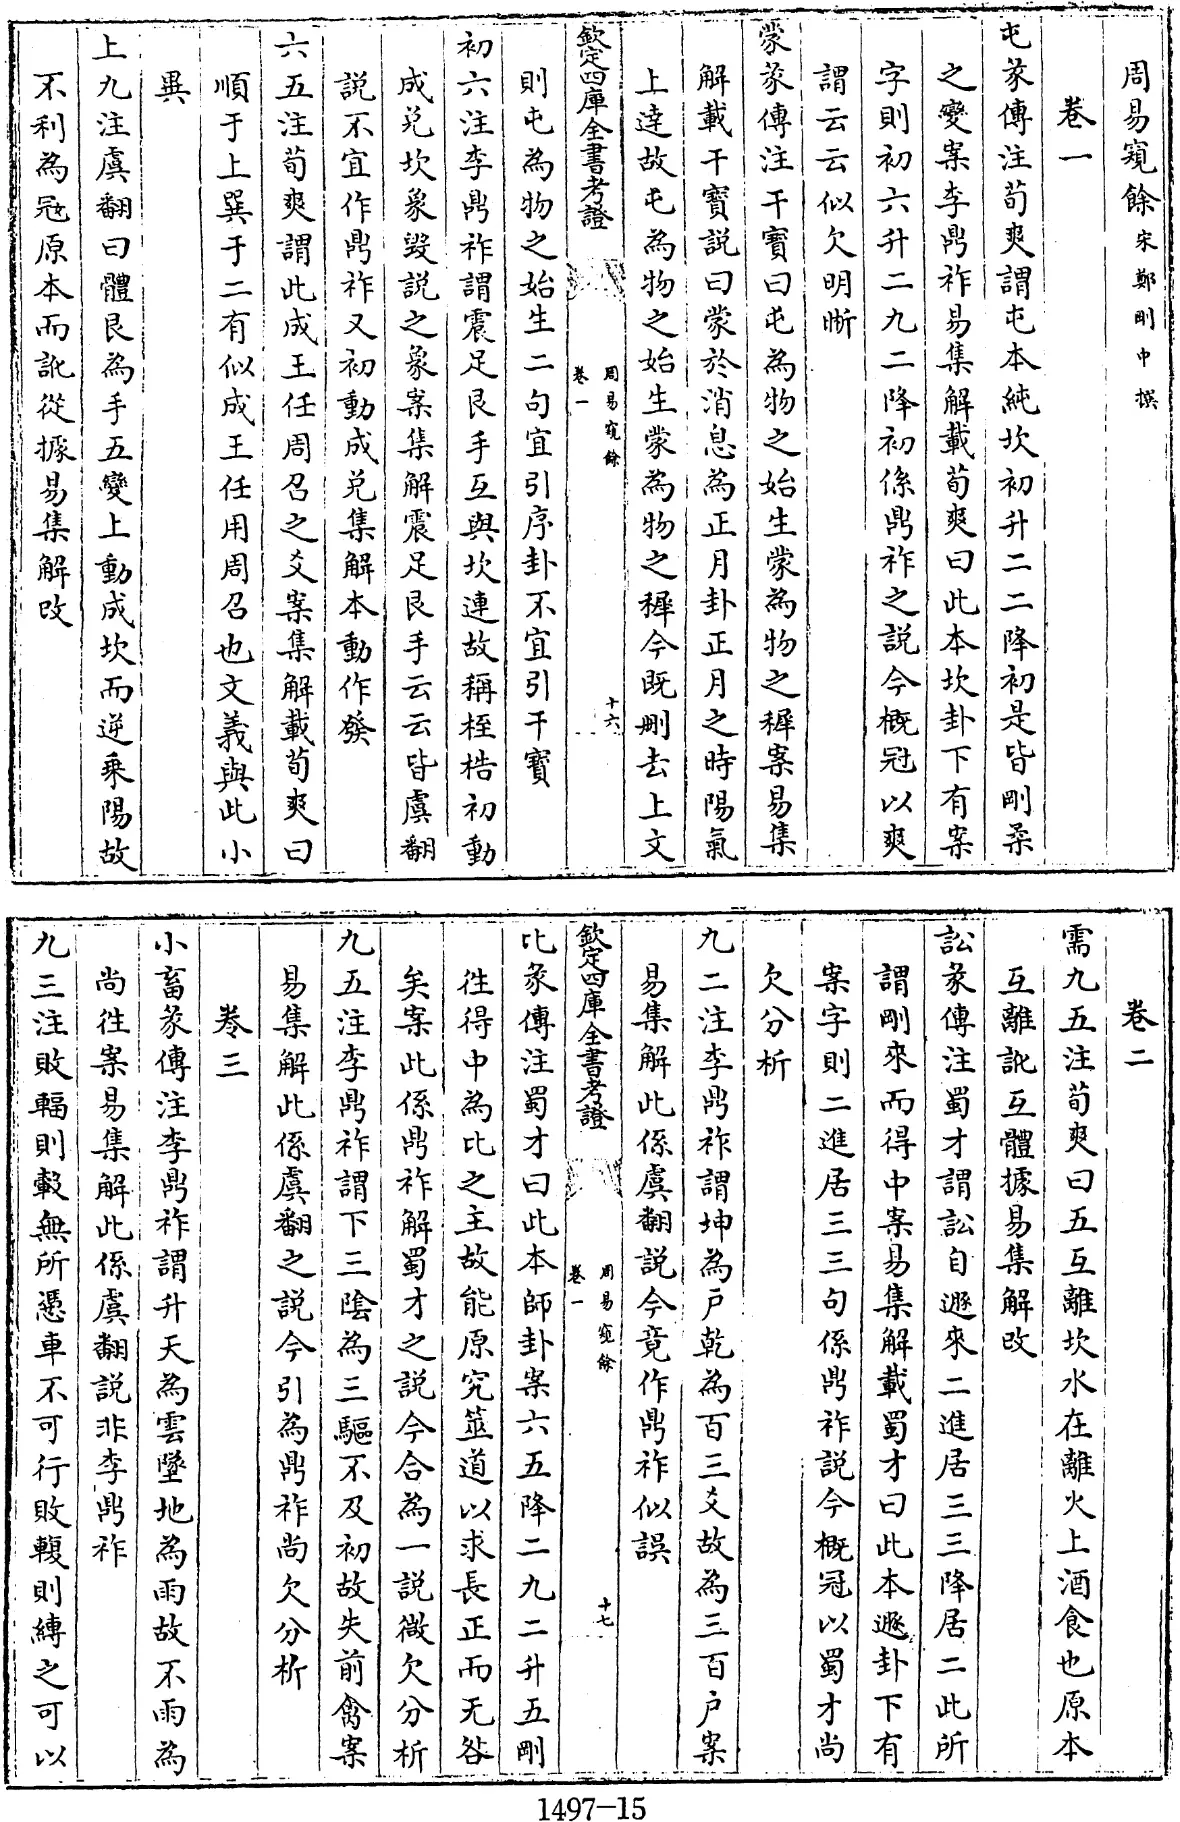 周易窺餘宋鄭剛中撰
卷一
屯彖傳注荀爽謂屯本純坎初升二二降初是皆剛柔
之變案李鼎祚易集解載荀爽曰此本坎卦下有案
字則初六升二九二降初係鼎祚之説今概冠以爽
謂云云似欠明晰
蒙彖傳注干寳曰屯為物之始生蒙為物之穉案易集
解載干寳説曰蒙於消息為正月卦正月之時陽氣
上逹故屯為物之始生蒙為物之穉今既刪去上文
欽定四庫全書考證
周易窺餘
卷一
十六
則屯為物之始生二句宜引序卦不宜引干寳
初六注李鼎祚謂震足艮手互與坎連故稱桎梏初動
成兑坎象毀説之象案集解震足艮手云云皆虞翻
説不宜作鼎祚又初動成兑集解本動作發
六五注荀爽謂此成王任周召之爻案集解載荀爽曰
順于上巽于二有似成王任用周召也文義與此小
異
上九注虞翻曰體艮為手五變上動成坎而逆乘陽故
不利為冦原本而訛從據易集解改
卷二
需九五注荀爽曰五互離坎水在離火上酒食也原本
互離訛互體據易集解改
訟彖傳注蜀才謂訟自遯來二進居三三降居二此所
謂剛來而得中案易集解載蜀才曰此本遯卦下有
案字則二進居三三句係鼎祚説今概冠以蜀才尚
欠分析
九二注李鼎祚謂坤為戸乾為百三爻故為三百戸案
易集解此係虞翻説今竟作鼎祚似誤
欽定四庫全書考證
周易窺餘
卷一
十七
比彖傳注蜀才曰此本師卦案六五降二九二升五剛
徃得中為比之主故能原究筮道以求長正而无咎
矣案此係鼎祚解蜀才之説今合為一説微欠分析
九五注李鼎祚謂下三隂為三驅不及初故失前禽案
易集解此係虞翻之説今引為鼎祚尚欠分析
卷三
小畜彖傳注李鼎祚謂升天為雲墜地為雨故不雨為
尚徃案易集解此係虞翻説非李鼎祚
九三注敗輻則轂無所憑車不可行敗輹則縛之可以
1497-15